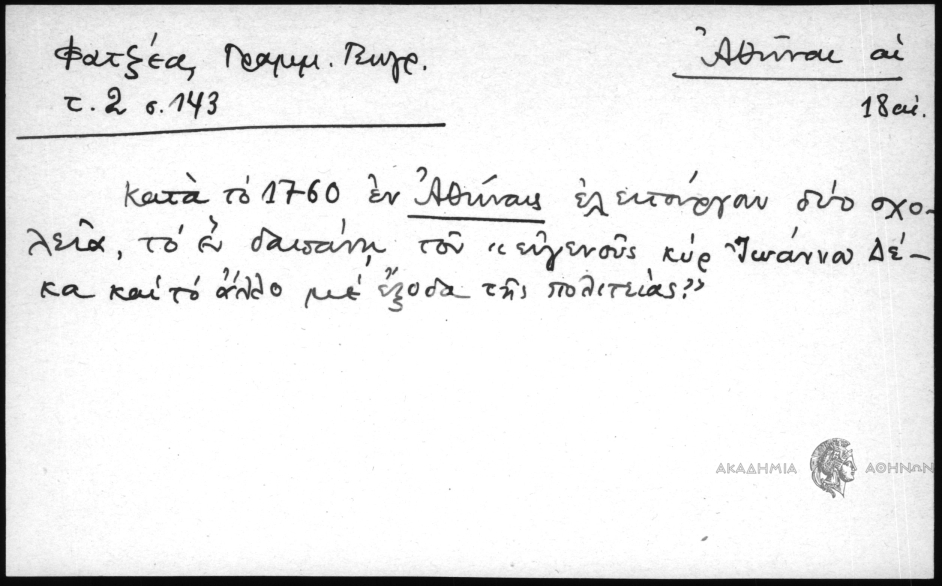 Φατζέα, Γραμμ. Γεωγρ.
τ. 2 σ. 143
Ἀθῆναι αἱ
18 αἰ.
κατὰ τό 1760 ἐν Ἀθήναις ἐλειτούργουν δύο σχο-
λεῖα, τό ἓν δαπάνῃ τοῦ «εὐγενοῦς κύρ Ἰωάννου Δέ-
κα καί τό ἄλλο μέ ἔξοδα τῆς πολιτείας.»
ΑΚΑΔΗΜΙΑ ΑΘΗΝΩΝ